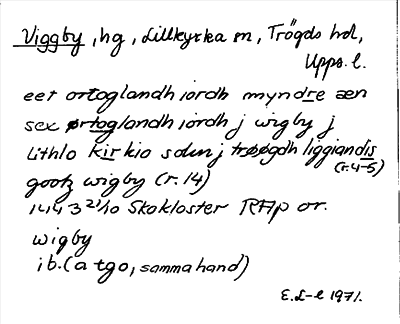 Viggby, hg, Lillkyrka sn, Trögds hd,
Upps. l.
eet ortoglandh iordh myndre æn
sex ørtoglandh iordh j wigby j
Lithlo kirkio sokn j trøøgdh liggiandis
(r. 4-5)
gootz wigby (r. 14)
1443 21/10 Skokloster RAp or.
wigby
ib. (a tgo, samma hand)
E. L-l 1971.